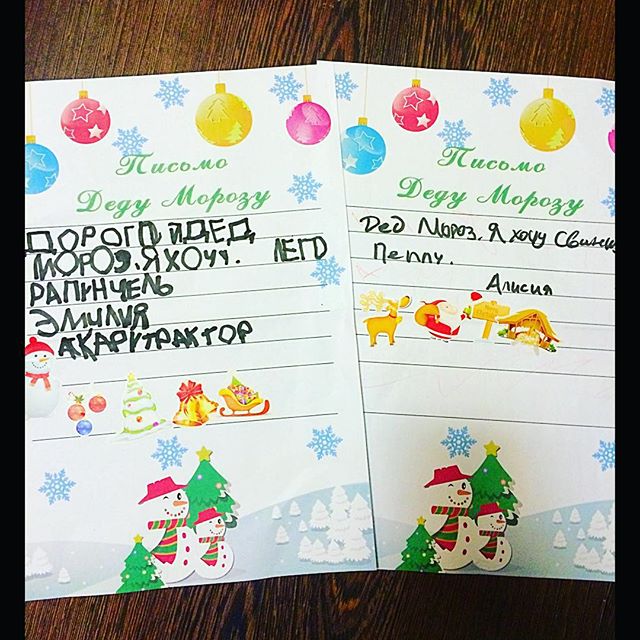 Письмо
Деду Морозу
ДОРОГОЙДЕД
МОРОЗ.Я ХОЧУ. ЛЕГО
РАПИНЧЕЛЬ
ЭМИЛИЯ
АКАРИТРАКТОР
Письмо
Деду Морозу
Дед Мороз. Я хочу Свинку
Пеппу.
Алисия